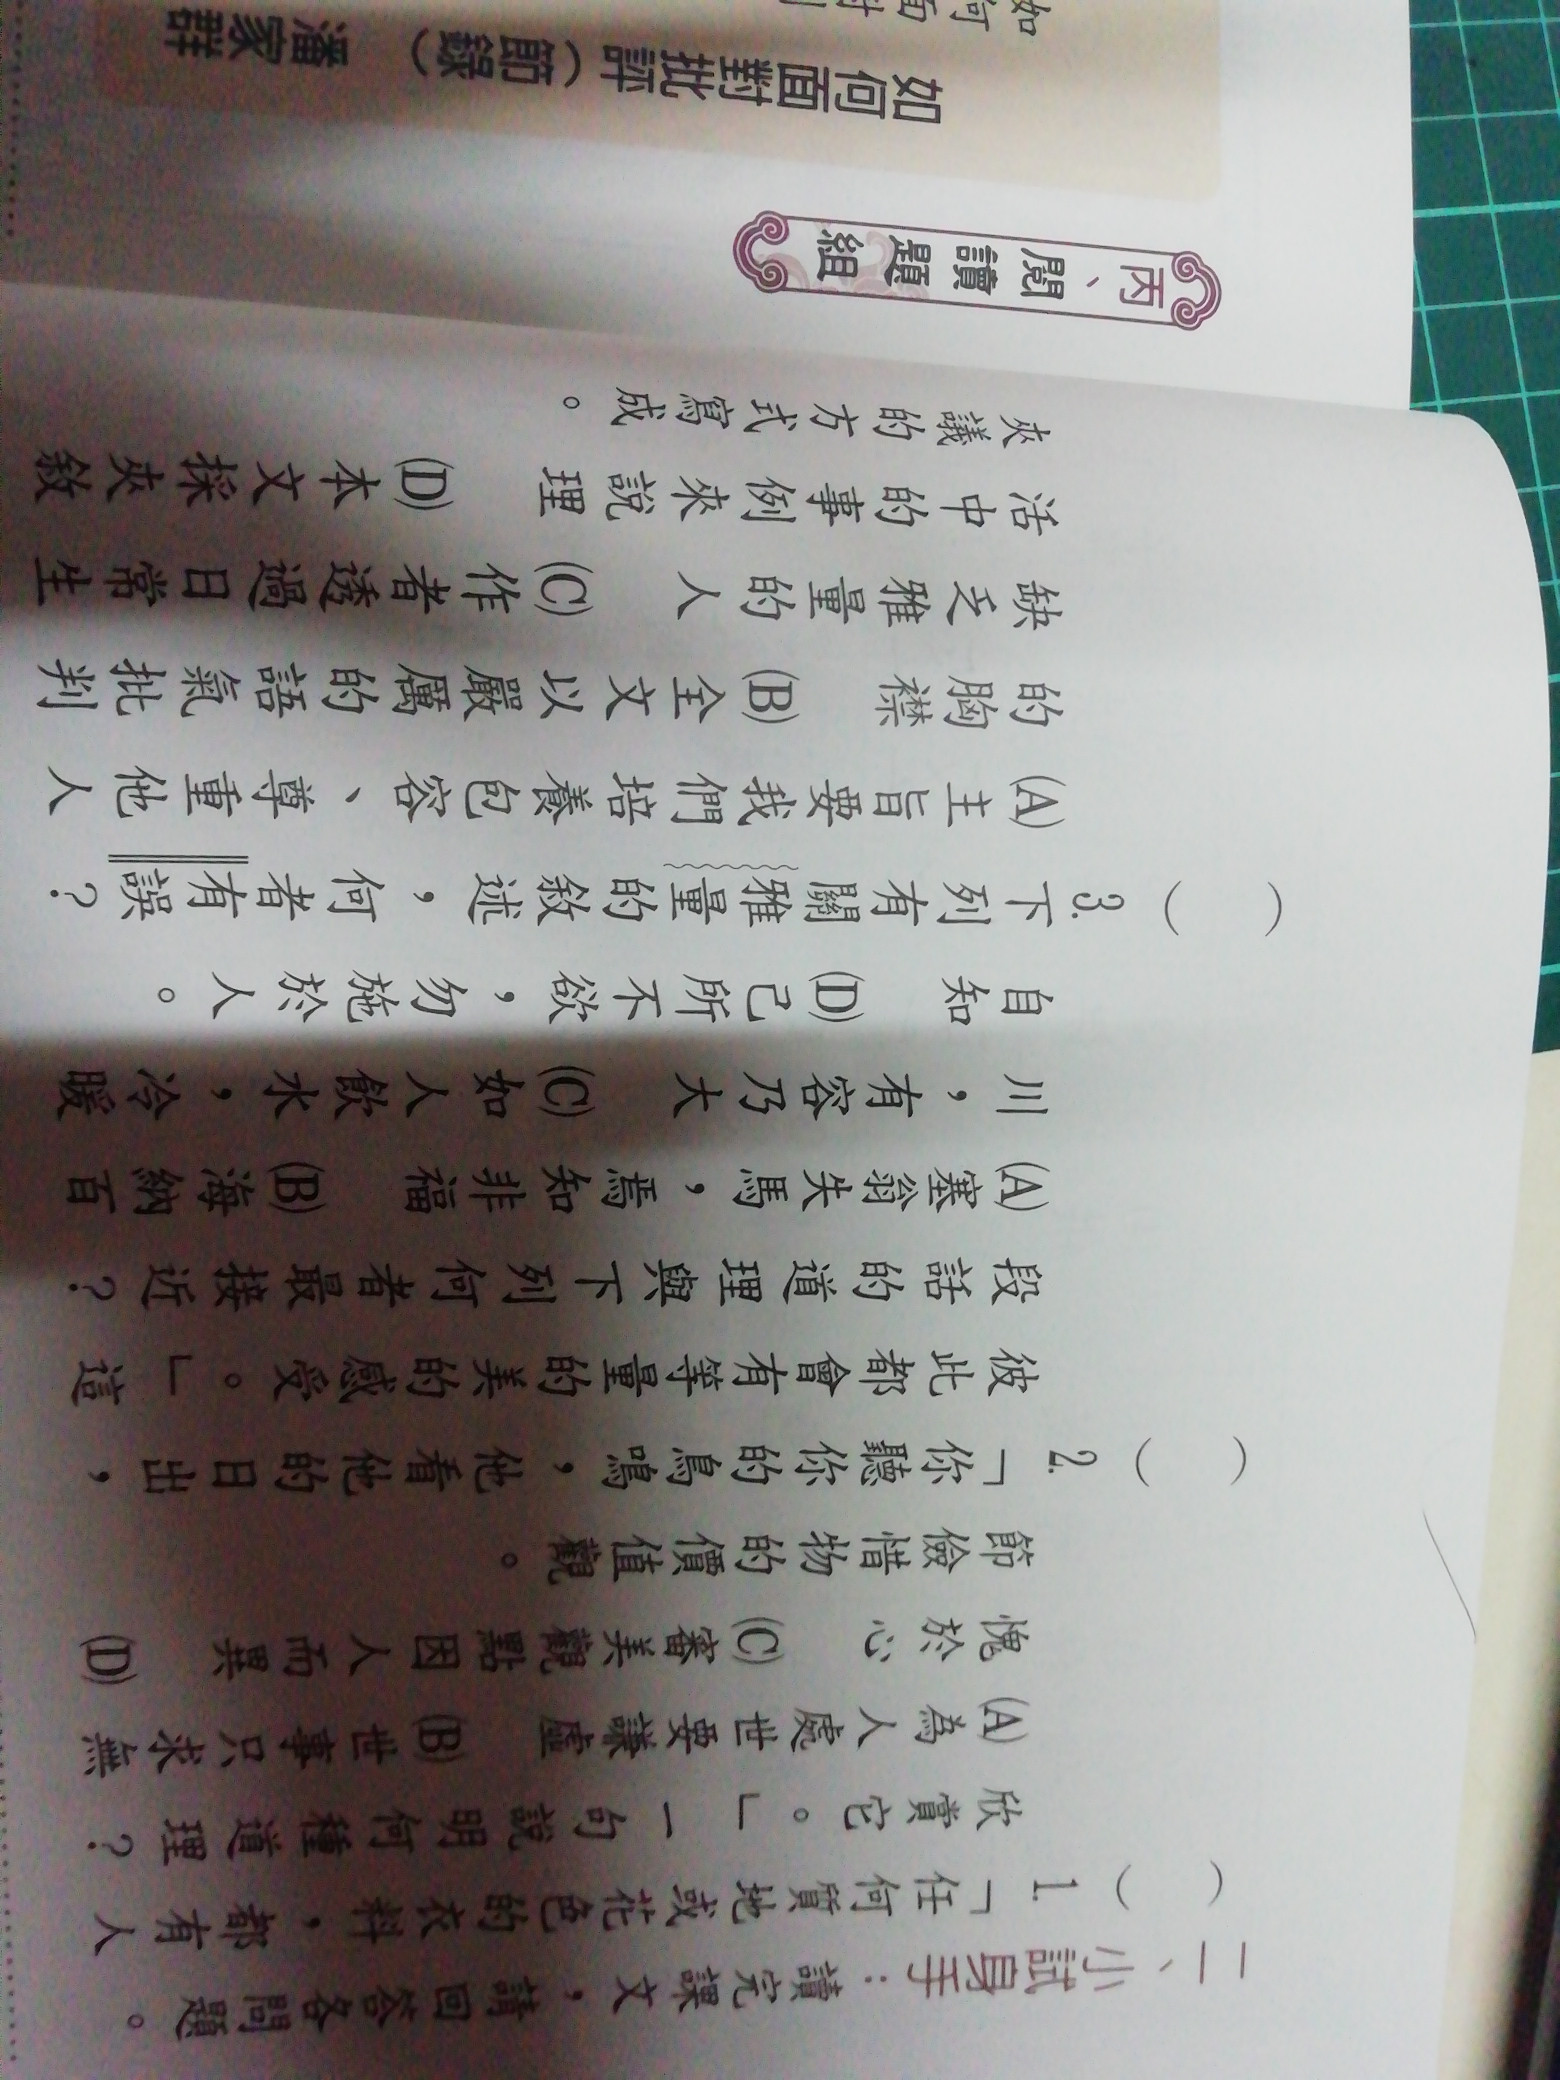 二、小試身手：讀完課文，請回答各問題。
（　）1.「任何質地或花色的衣料，都有人
欣賞它。」一句說明何種道理？
(A)為人處世要謙虛　(B)世事只求無
愧於心　(C)審美觀點因人而異　(D)
節儉惜物的價值觀。
（　）2.「你聽你的鳥鳴，他看他的日出，
彼此都會有等量的美的感受。」這
段話的道理與下列何者最接近？
(A)塞翁失馬，焉知非福　(B)海納百
川，有容乃大　(C)如人飲水，冷暖
自知　(D)己所不欲，勿施於人。
（　）3.下列有關雅量的敘述，何者有誤？
(A)主旨要我們培養包容、尊重他人
的胸襟　(B)全文以嚴厲的語氣批判
缺乏雅量的人　(C)作者透過日常生
活中的事例來說理　(D)本文採夾敘
夾議的方式寫成。
丙、閱讀題組
如何面對批評（節錄）　潘家群
如何面對